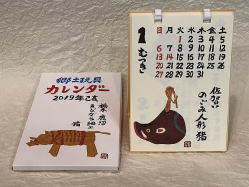 郷土玩具
カレンダー
2019年己亥
栃木 鹿沼
きびがら細工
猪
1
むつき
日 月 火 水 木 金 土
1 2 3 4 5
6 7 8 9 10 11 12
13 14 15 16 17 18 19
20 21 22 23 24 25 26
27 28 29 30 31
佐賀
のごみ人形 猪